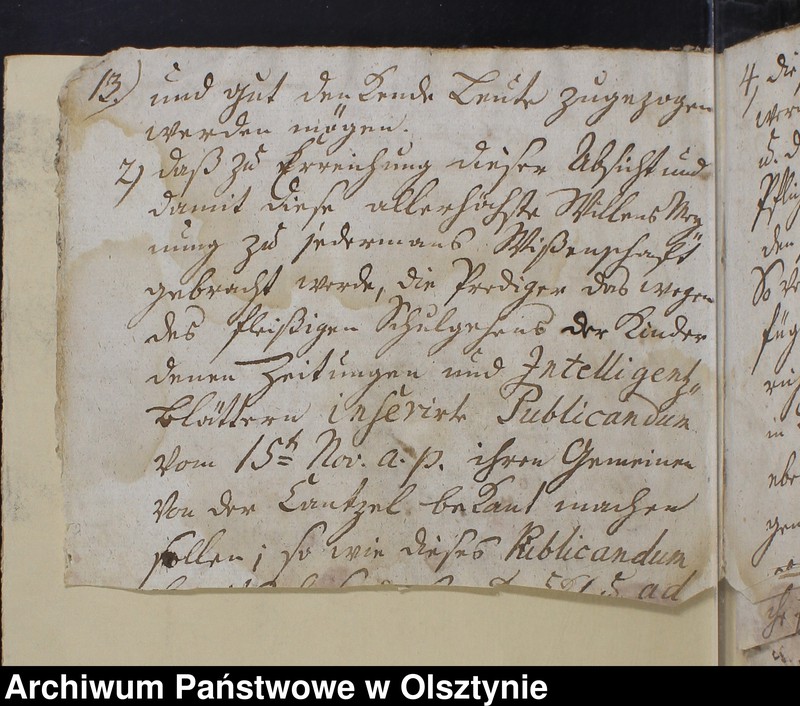 13.) und gut denkende Leute zugezogen
werden mögen.
2) daß zu Erreichung dieser Absicht und
damit diese allerhöchste Willens Mey
nung zu jedermans Wißenschaft
gebracht werde, die Prediger das wegen
des fleißigen Schulgehens der Kinder
denen Zeitungen und Intelligentz„
Blättern inserirte Publicandum
vom 15t Nov. a. p. ihren Gemeinen
von der Cantzel bekant machen
sollen; so wie dieses Publicandum
ad
4) die
wer
u. d
Pflic
den
So
füg
ric
in
ebe
gen
ihr
Archiwum Państwowe w Olsztynie